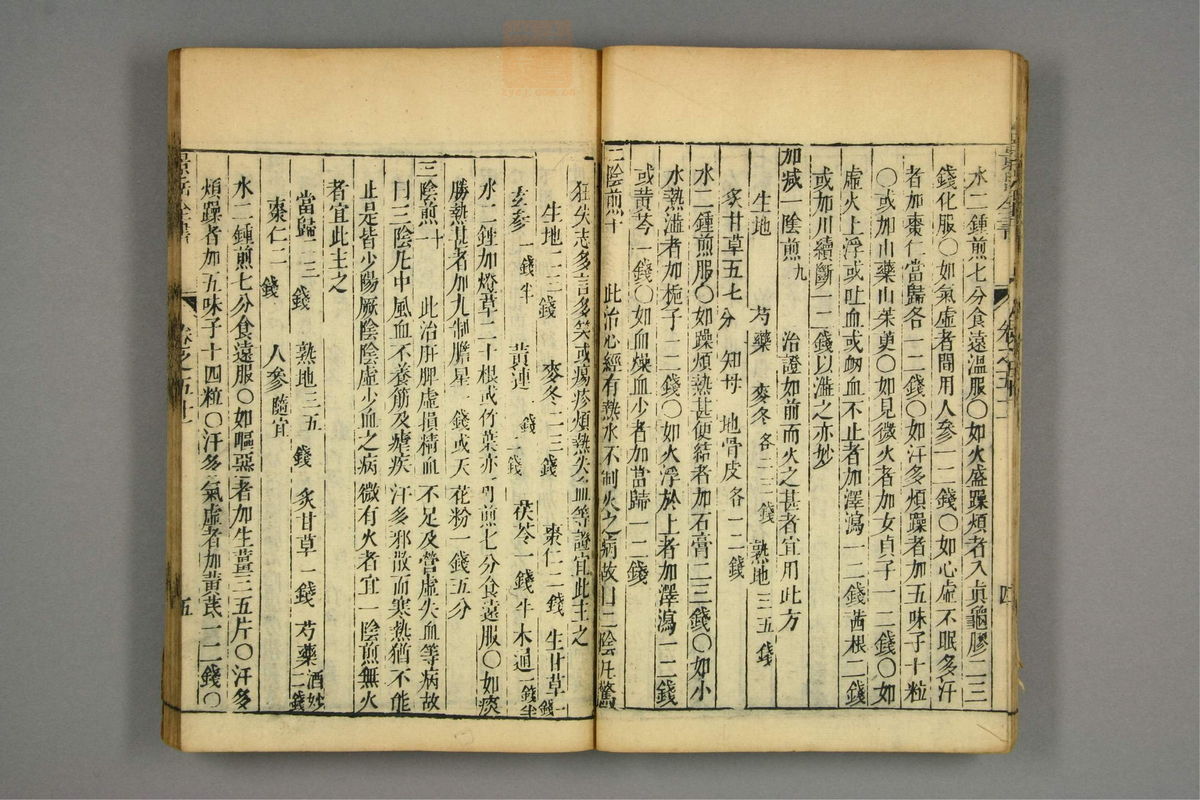 水二鍾煎七分食遠溫服○如火盛躁煩者入真龜膠二三
錢化服○如氣虛者間用人參一二錢○如心虛不眠多汗
者加棗仁當歸各一二錢○如汗多煩躁者加五味子十粒
○或加山藥山茱萸○如見微火者加女貞子一二錢○如
虛火上浮或吐血或衂血不止者加澤瀉一二錢茜根二錢
或加川續斷一二錢以濇之亦妙
加減一陰煎九 治證如前而火之甚者宜用此方
生地 芍藥 麥冬各二三錢 熟地三五錢
炙甘草五七分 知母 地骨皮各一二錢
水二鍾煎服○如躁煩熱甚便結者加石膏二三錢○如小
水熱濇者加梔子一二錢○如火浮於上者加澤瀉一二錢
或黃芩一錢○如血燥血少者加當歸一二錢
二陰煎十 此治心經有熱水不制火之病故曰二陰凡驚
狂失志多言多笑或瘍疹煩熱失血等證宜此主之
生地二三錢 麥冬二三錢 棗仁二錢 生甘草一錢
玄參一錢半 黃連一二錢 茯苓一錢半 木通一錢半
水二鍾加燈草二十根或竹葉亦可煎七分食遠服○如痰
勝熱甚者加九制膽星一錢或天花粉一錢五分
三陰煎十一 此治肝脾虛損精血不足及營虛失血等病故
曰三陰凡中風血不養筋及瘧疾汗多邪散而寒熱猶不能
止是皆少陽厥陰陰虛少血之病微有火者宜一陰煎無火
者宜此主之
當歸二三錢 熟地三五錢 炙甘草一錢 芍藥酒炒二錢
棗仁二錢 人參隨宜
水二鍾煎七分食遠服○如嘔惡者加生薑三五片○汗多
煩躁者加五味子十四粒○汗多氣虛者加黃芪一二錢○
景岳全書 卷之五十一 五